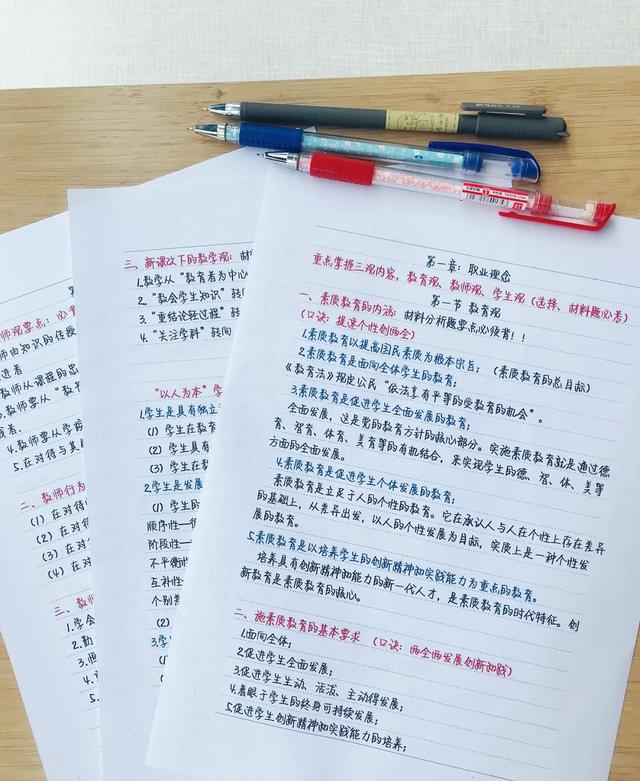 第一章：职业理念
重点掌握三观内容，教育观、教师观、学生观（选择、材料题必考）
第一节 教育观
一、素质教育的内涵：材料分析题要点必须背！！
（口诀：提速个性创两全）
1.素质教育以提高国民素质为根本宗旨；（素质教育的总目标）
2.素质教育是面向全体学生的教育；
《教育法》规定公民“依法享有平等的受教育的机会”。
3.素质教育是促进学生全面发展的教育；
全面发展，这是党的教育方针的核心部分。实施素质教育就是通过德
育、智育、体育、美育等的有机结合，来实现学生的德、智、体、美等
方面的全面发展。
4.素质教育是促进学生个体发展的教育；
素质教育是立足于人的个性的教育。它在承认人与人在个性上存在差异
的基础上，从差异出发，以人的个性发展为目标，实质上是一种个性发
展的教育。
5.素质教育是以培养学生的创新精神和实践能力为重点的教育。
培养具有创新精神和能力的新一代人才，是素质教育的时代特征。创
新教育是素质教育的核心。
二、施素质教育的基本要求 （口诀：两全两发展创新和践）
1.面向全体；
2.促进学生全面发展；
3.促进学生生动、活泼、主动得发展；
4.着眼于学生的终身可持续发展；
5.促进学生创新精神和实践能力的培养；
三、新课改下的教学观：材
1.教学从“教育者为中心
2.“教会学生知识”转向
3.“重结论轻过程”转
4.“关注学科”转向
“以人为本”学
1.学生是具有独立
（1）学生在教育
（2）学生具有
（3）学生在教
2.学生是发展
（1）学生的
顺序性—
阶段性—
不平衡性
互补性—
个别差
（2）
（3）
3.学
师观要点：必考
师由知识的传授
进者
教师从课程的忠
教师要从“教
者。
4.教师要从学校
5.在对待与其
二、教师行为
（1）在对待
（2）在对待
（3）在对
（4）在对
三、教师
1.学会
2.勤
3.
4.
5.